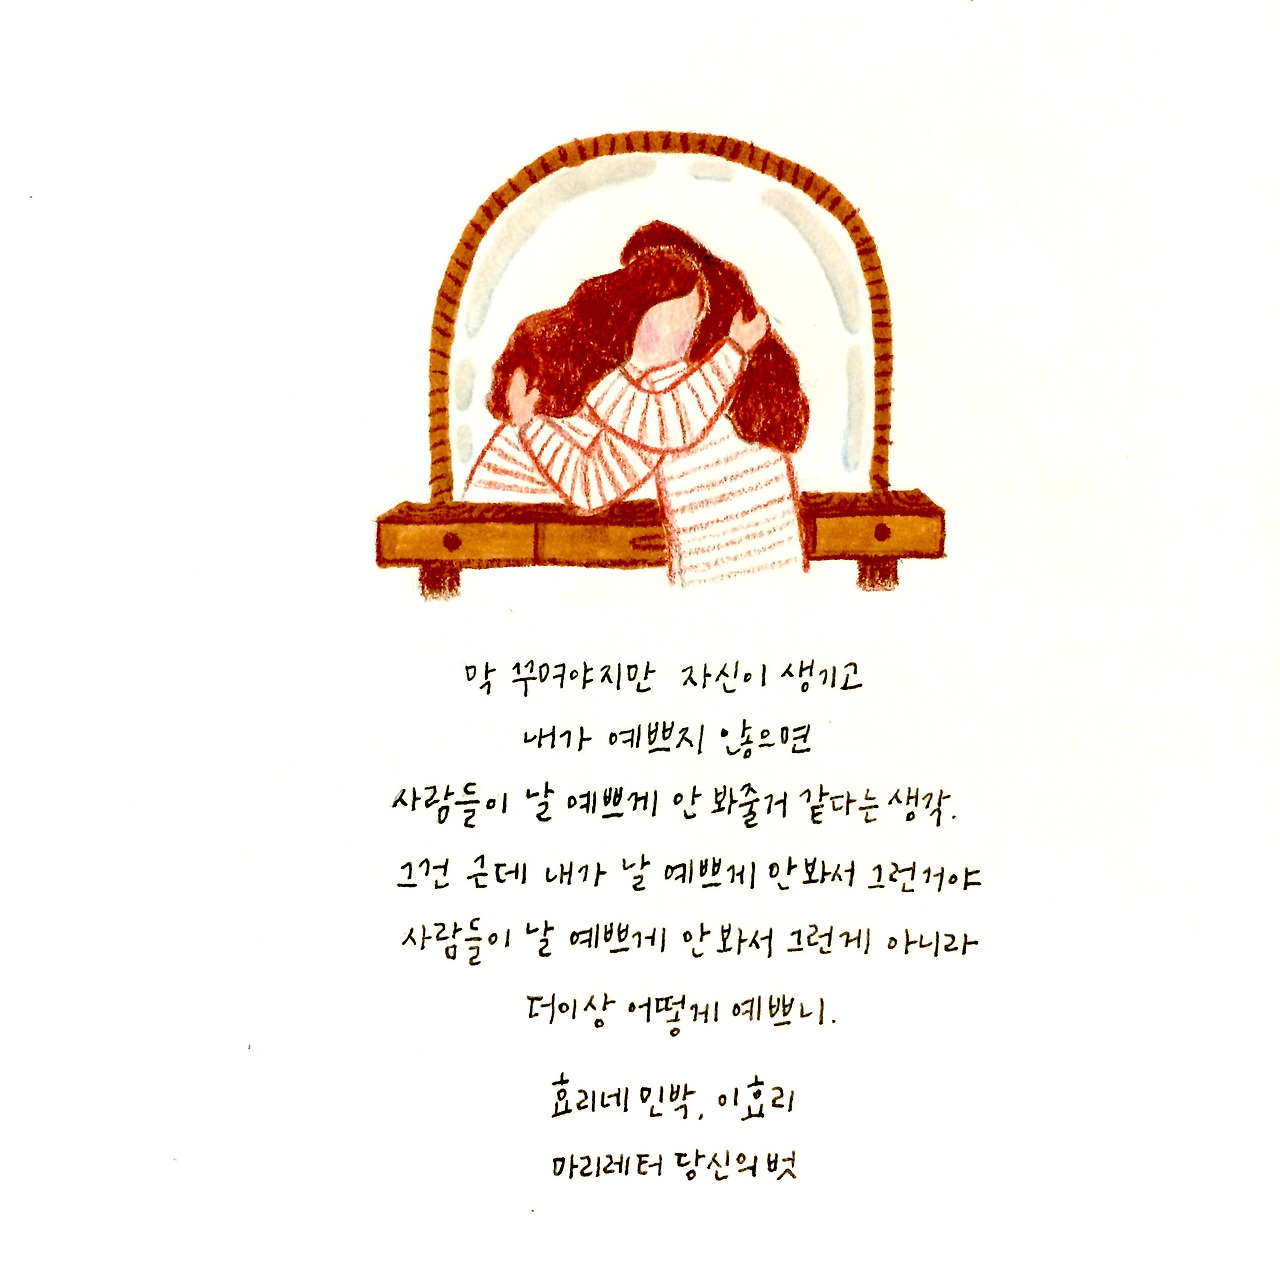 막 꾸며야지만 자신이 생기고
내가 예쁘지 않으면
사람들이 날 예쁘게 안 봐줄거 같다는 생각.
그건 근데 내가 날 예쁘게 안봐서 그런거야
사람들이 날 예쁘게 안봐서 그런게 아니라
더이상 어떻게 예쁘니.
효리네 민박, 이효리
마리레터 당신의 벗